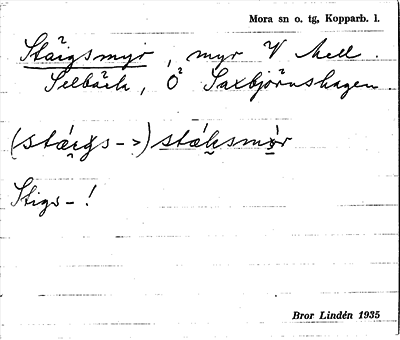 Mora sn o. tg, Kopparb. l.
Stäigsmyr, myr V Mell.
Selbäck, Ö Saxbjörnshagen
Stigs-!
Bror Lindén 1935